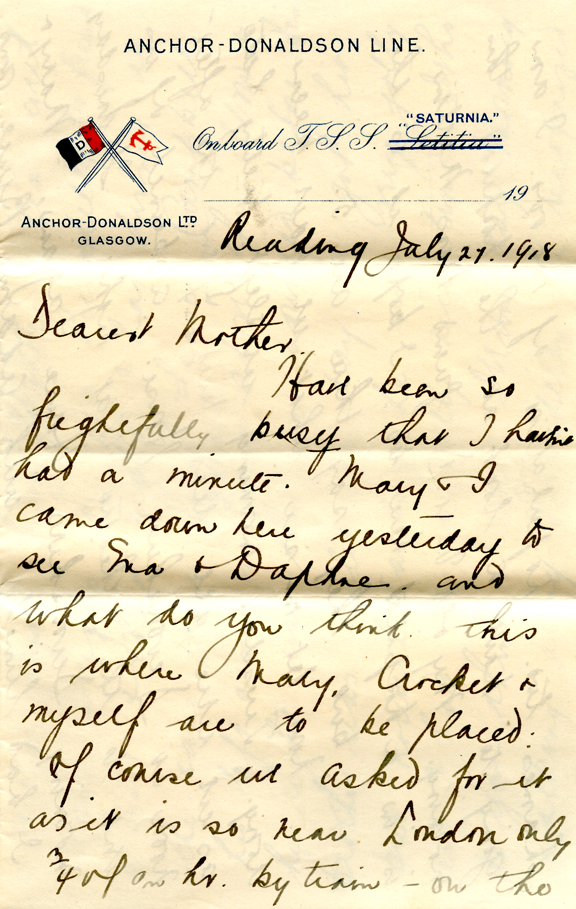 ANCHOR-DONALDSON LINE.
"SATURNIA."
On board T.S.S. "Letitia"
19
ANCHOR-DONALDSON LTD
GLASGOW.
Reading July 27. 1918
Dearest Mother
Have been so
frightfully busy that I havn't
had a minute. Mary & I
came down here yesterday to
see Eva & Daphne. and
what do you think this
is where Mary, Crocket &
myself are to be placed.
Of course we asked for it
as it is so near London only
3/4 of an hr. by train - on the